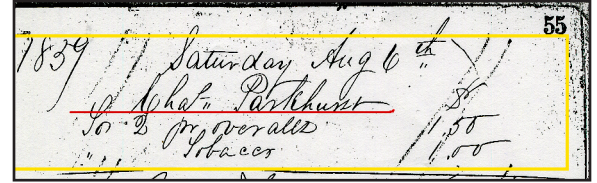 55
1859 Saturday Aug 6th
Chas Parkhurst Dr
For 2 pr overalls 1.50
" Tobacco